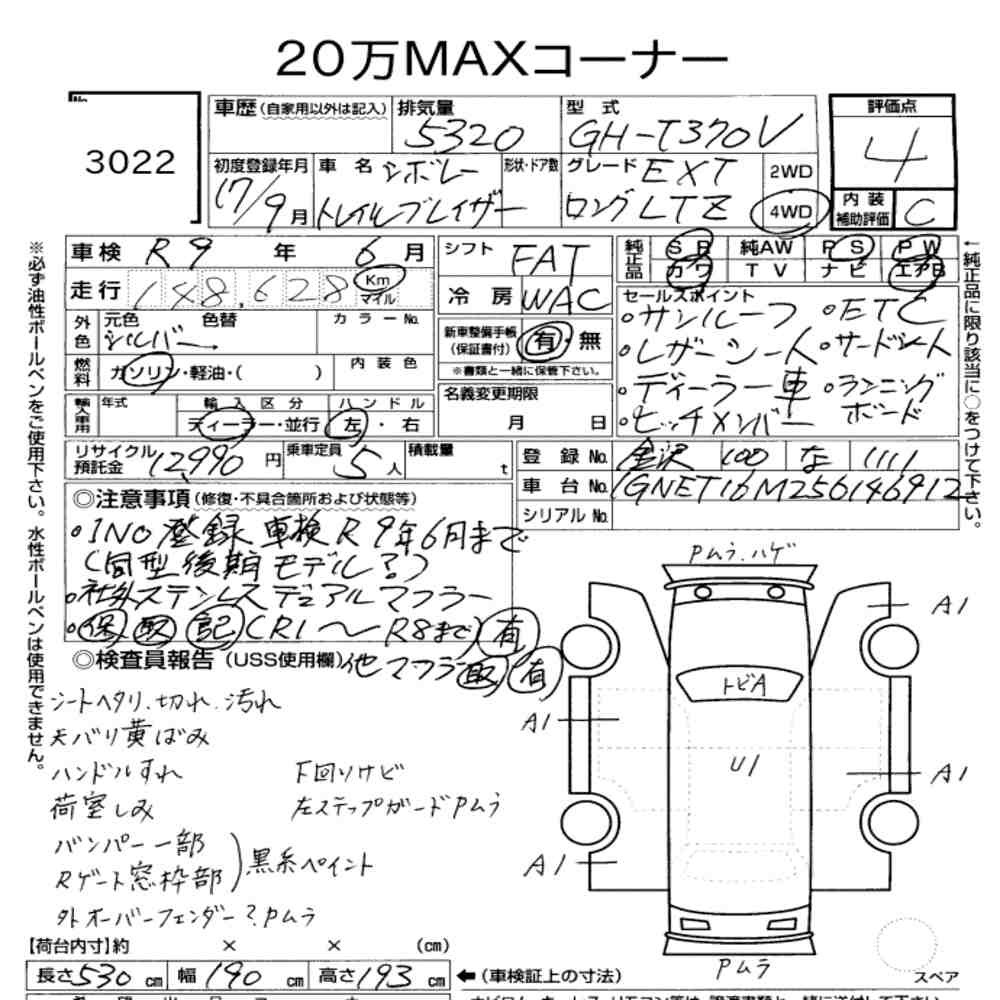 20万MAXコーナー
No.
3022
車歴(自家用以外は記入)
排気量
5320
型式
GH-T370V
評価点
4
初度登録年月
17/9月
車名
シボレー
トレイルブレイザー
形状・ドア数
グレード
EXT
ロングLTZ
2WD
4WD
内装
補助評価
C
車検 R9年 6月
走行 148,628 Km
マイル
外色
元色 色替
シルバー
カラーNo.
燃料
ガソリン・軽油・( )
内装色
輸入車用
年式
輸入区分
ディーラー・並行
ハンドル
左・右
シフト FAT
冷房 WAC
新車整備手帳
(保証書付)
有・無
※書類と一緒に保管下さい。
名義変更期限
月 日
純正品
SR 純AW PS PW
カワ TV ナビ エアB
セールスポイント
・サンルーフ ・ETC
・レザーシート ・サードシート
・ディーラー車 ・ランニング
ボード
・ヒッチメンバー
←純正品に限り該当に○をつけて下さい。
※必ず油性ボールペンをご使用下さい。水性ボールペンは使用できません。
リサイクル
預託金
12,990円
乗車定員
5人
積載量
t
登録No. 金沢 100 な 1111
車台No. 1GNET16M256146912
シリアルNo.
◎注意事項(修復・不具合箇所および状態等)
・1NO登録 車検R9年6月まで
(同型後期モデル?)
・社外ステンレスデュアルマフラー
・保 取 記(R1〜R8まで)有
◎検査員報告(USS使用欄)
他マフラ取有
シートヘタリ、切れ、汚れ
天バリ黄ばみ
ハンドルすれ
荷室しみ
バンパー一部
Rゲート窓枠部
黒系ペイント
外オーバーフェンダー?Pムラ
下回りサビ
左ステップガードPムラ
Pムラ・ハゲ
A1
トビA
A1
U1
A1
A1
Pムラ
スペア
【荷台内寸】約 × × (cm)
長さ530cm 幅190cm 高さ193cm
←(車検証上の寸法)